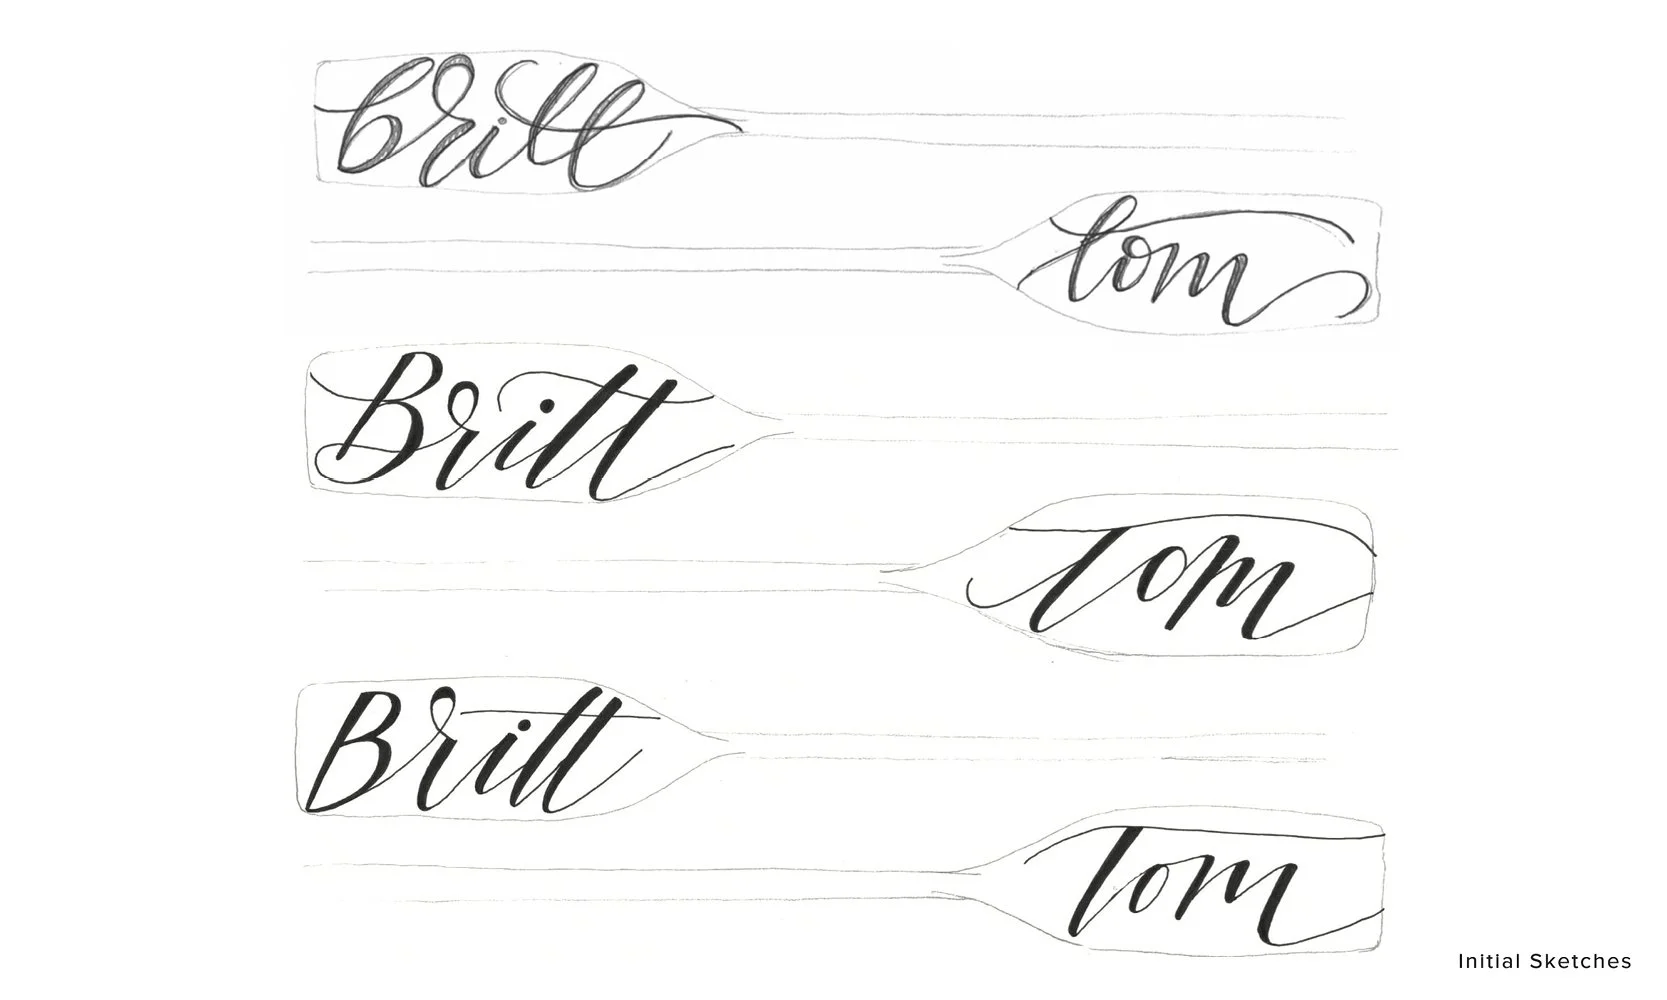 britt
tom
Britt
Tom
Britt
Tom
Initial Sketches